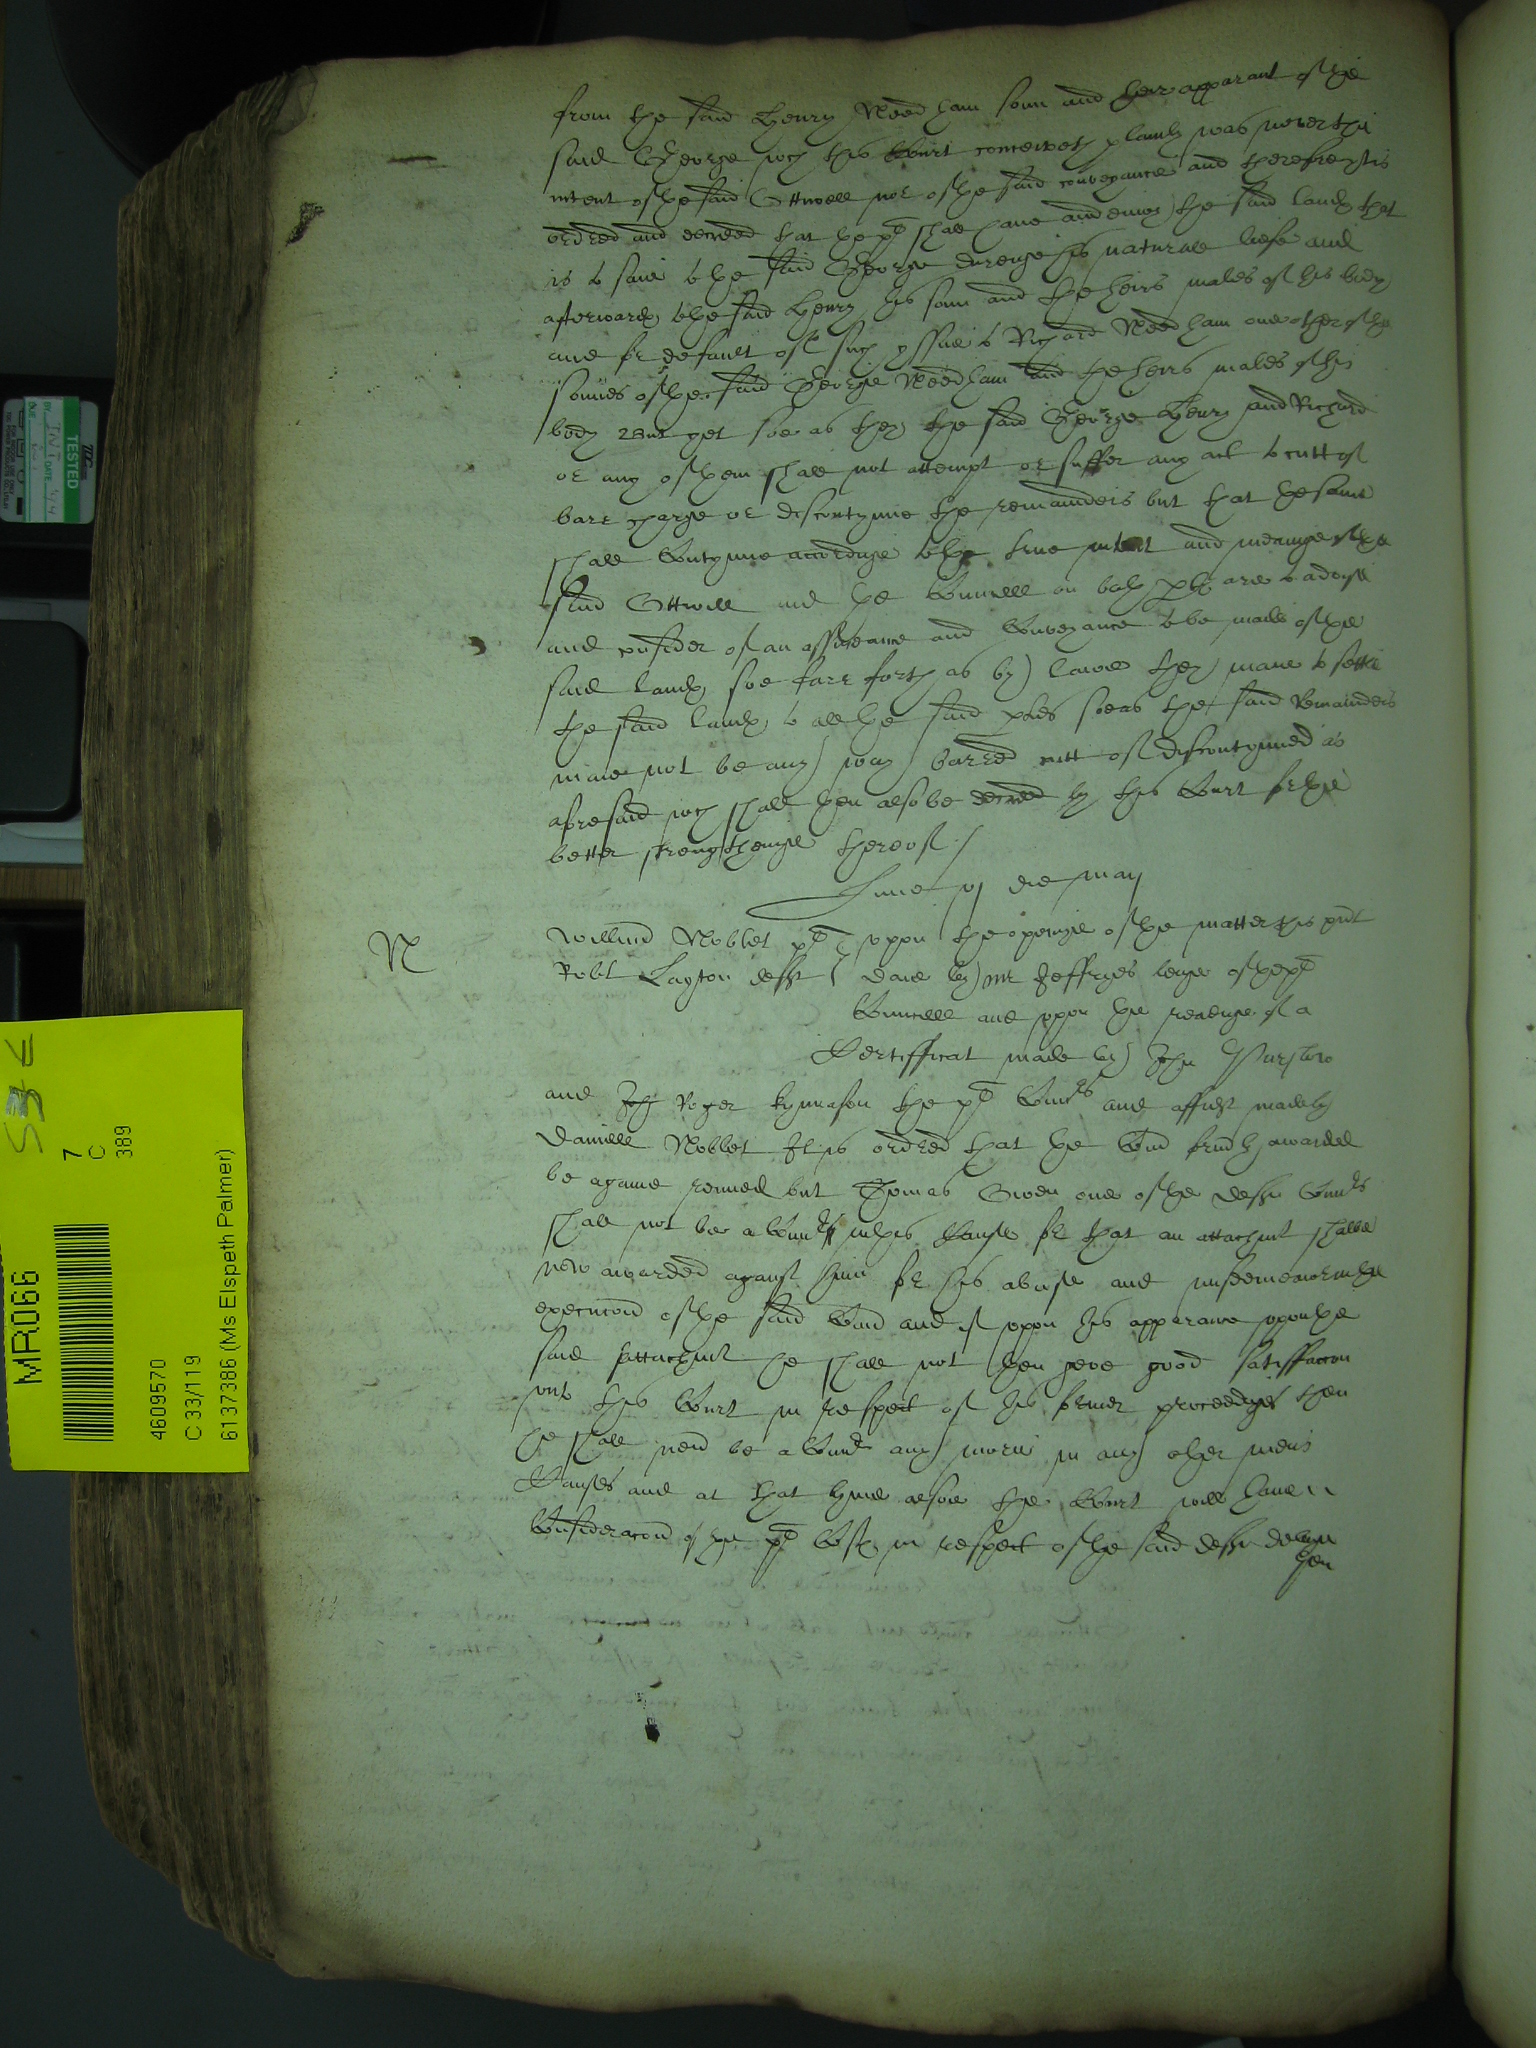 from the said Henry Needham sonn and heire apparant of the
said George wch this Court conceiveth plainly was never the
intent of the said Ottwell nor of the said conveyance and therefore it is
ordred and decreed that the pl shall have and enioy the said lands that
is to saie to the said George duringe his naturall liefe and
afterwards to the said Henry his sonn and the heires males of his body
and for default of such yssue to Richard Needham one other of the
sonnes of the said George Needham and the heirs males of his
body But yet soe as they the said George Henry and Richard
or any of them shall not attempt or suffer any act to cutt of
barr charge or discontynue the remainders but that the same
shall Contynue accordinge to the true intent and meaninge of the
said Ottwell and the Councell on both pts are to advise
and consider of an assurance and Conveyance to be made of the
said lands soe farr forth as by lawe they maie to settle
the said lands to all the said pties soe as the said Remainders
maie not be any way barred cutt of discontynued as
aforesaid wch shall then also be decreed by this Court for the
better strengthenige thereof /
Lune vj die May
N
Willmd Noblet pl upon the openinge of the matter this pnt
Robt Layton defft daie by mr Jeffryes beinge of the pl
Councell and vppon the readinge of a
Certifficat made by John Purslow
and Roger kynnaston the pl Comrs and affidt made by
Daniell Noblet It is ordred that the Com formrly awarded
be againe renued but Thomas Owen one of the deffts Comrs
shall not be a Comr in this Cause for that an attachmt shalbe
now awarded against him for his abuse and in the
execucion of the said Com and if vppon his apparance vppon the
said Attachmt he shall not then geve good satisffaccon
vnto this Court in respect of his former proceedings then
he shall neuer be a Comr any more in any other mens
Causes and at that tyme alsoe the Court will have
Consideracon of the pl Costs in respect of the said defft
then
TESTED
BY INT DATE 4/4
DUE
MR066
7
C
389
4609570
C 33/119
6137386 (Ms Elspeth Palmer)